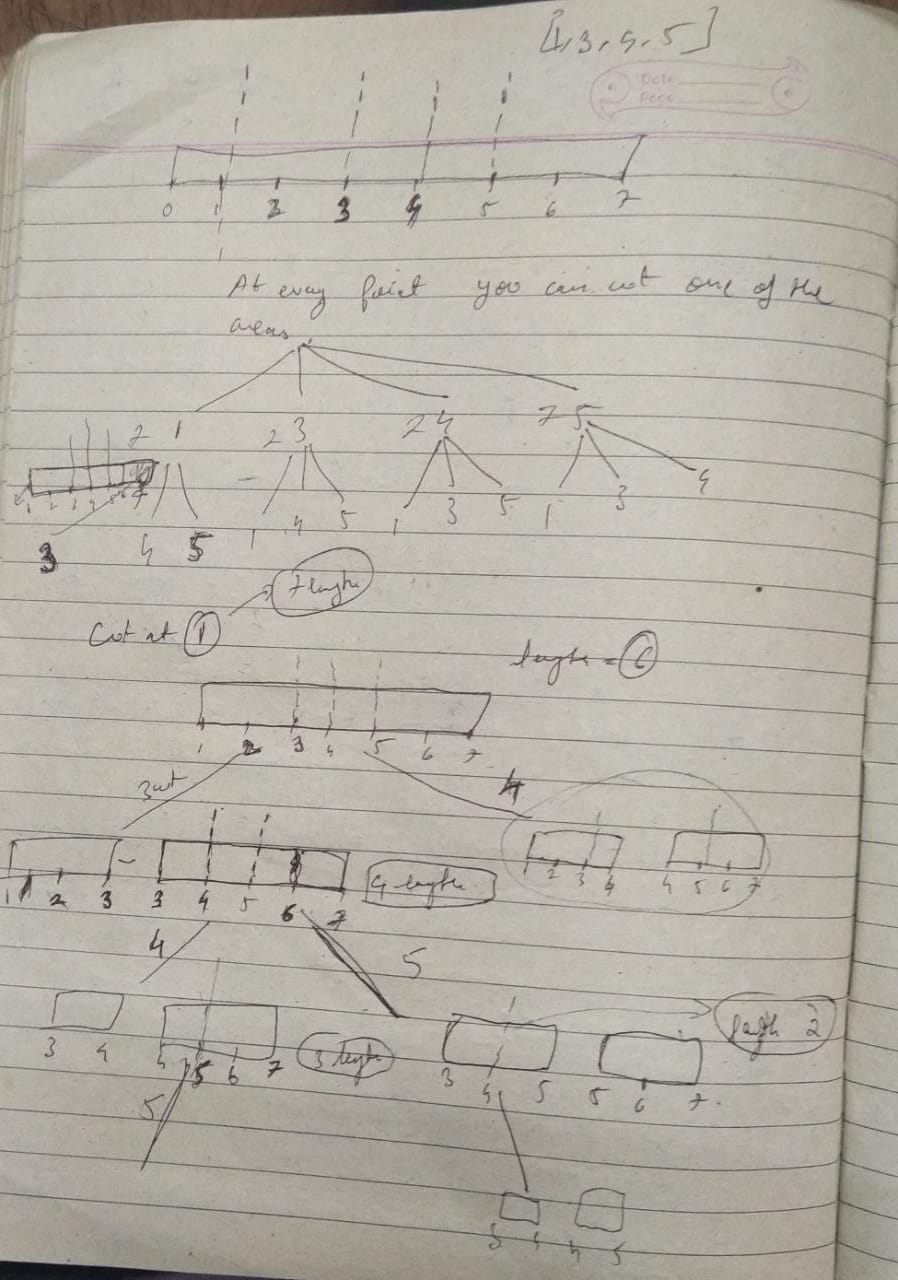 [1, 3, 4, 5]
Date
Page
0 1 2 3 4 5 6 7
At every point you can cut one of the
areas
7 1 2 3 2 4 7 5
1 2 3 4 5 6 7
3 4 5 1 4 5 1 3 5 1 3 4
7 length
Cut at 1
length = 6
1 2 3 4 5 6 7
3 cut 4
1 2 3 3 4 5 6 7 4 length
2 3 4 4 5 6 7
4 5
3 4 4 5 6 7 3 length
3 4 5 5 6 7 length 2
5
3 4 4 5